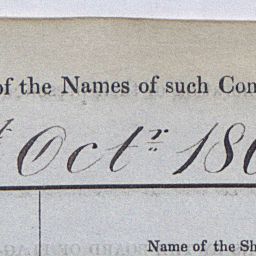 of the Names of such Con
Octr 186
Name of the Sh